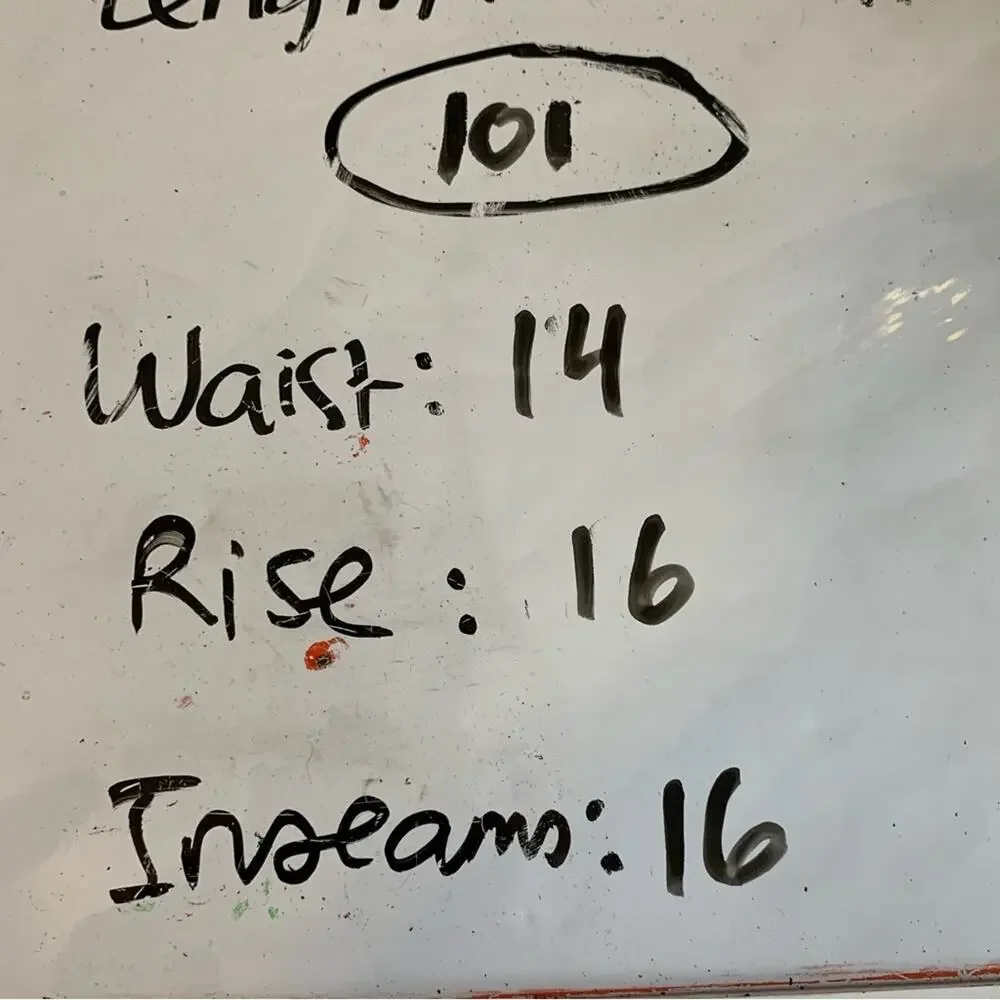 101
Waist: 14
Rise: 16
Inseams: 16